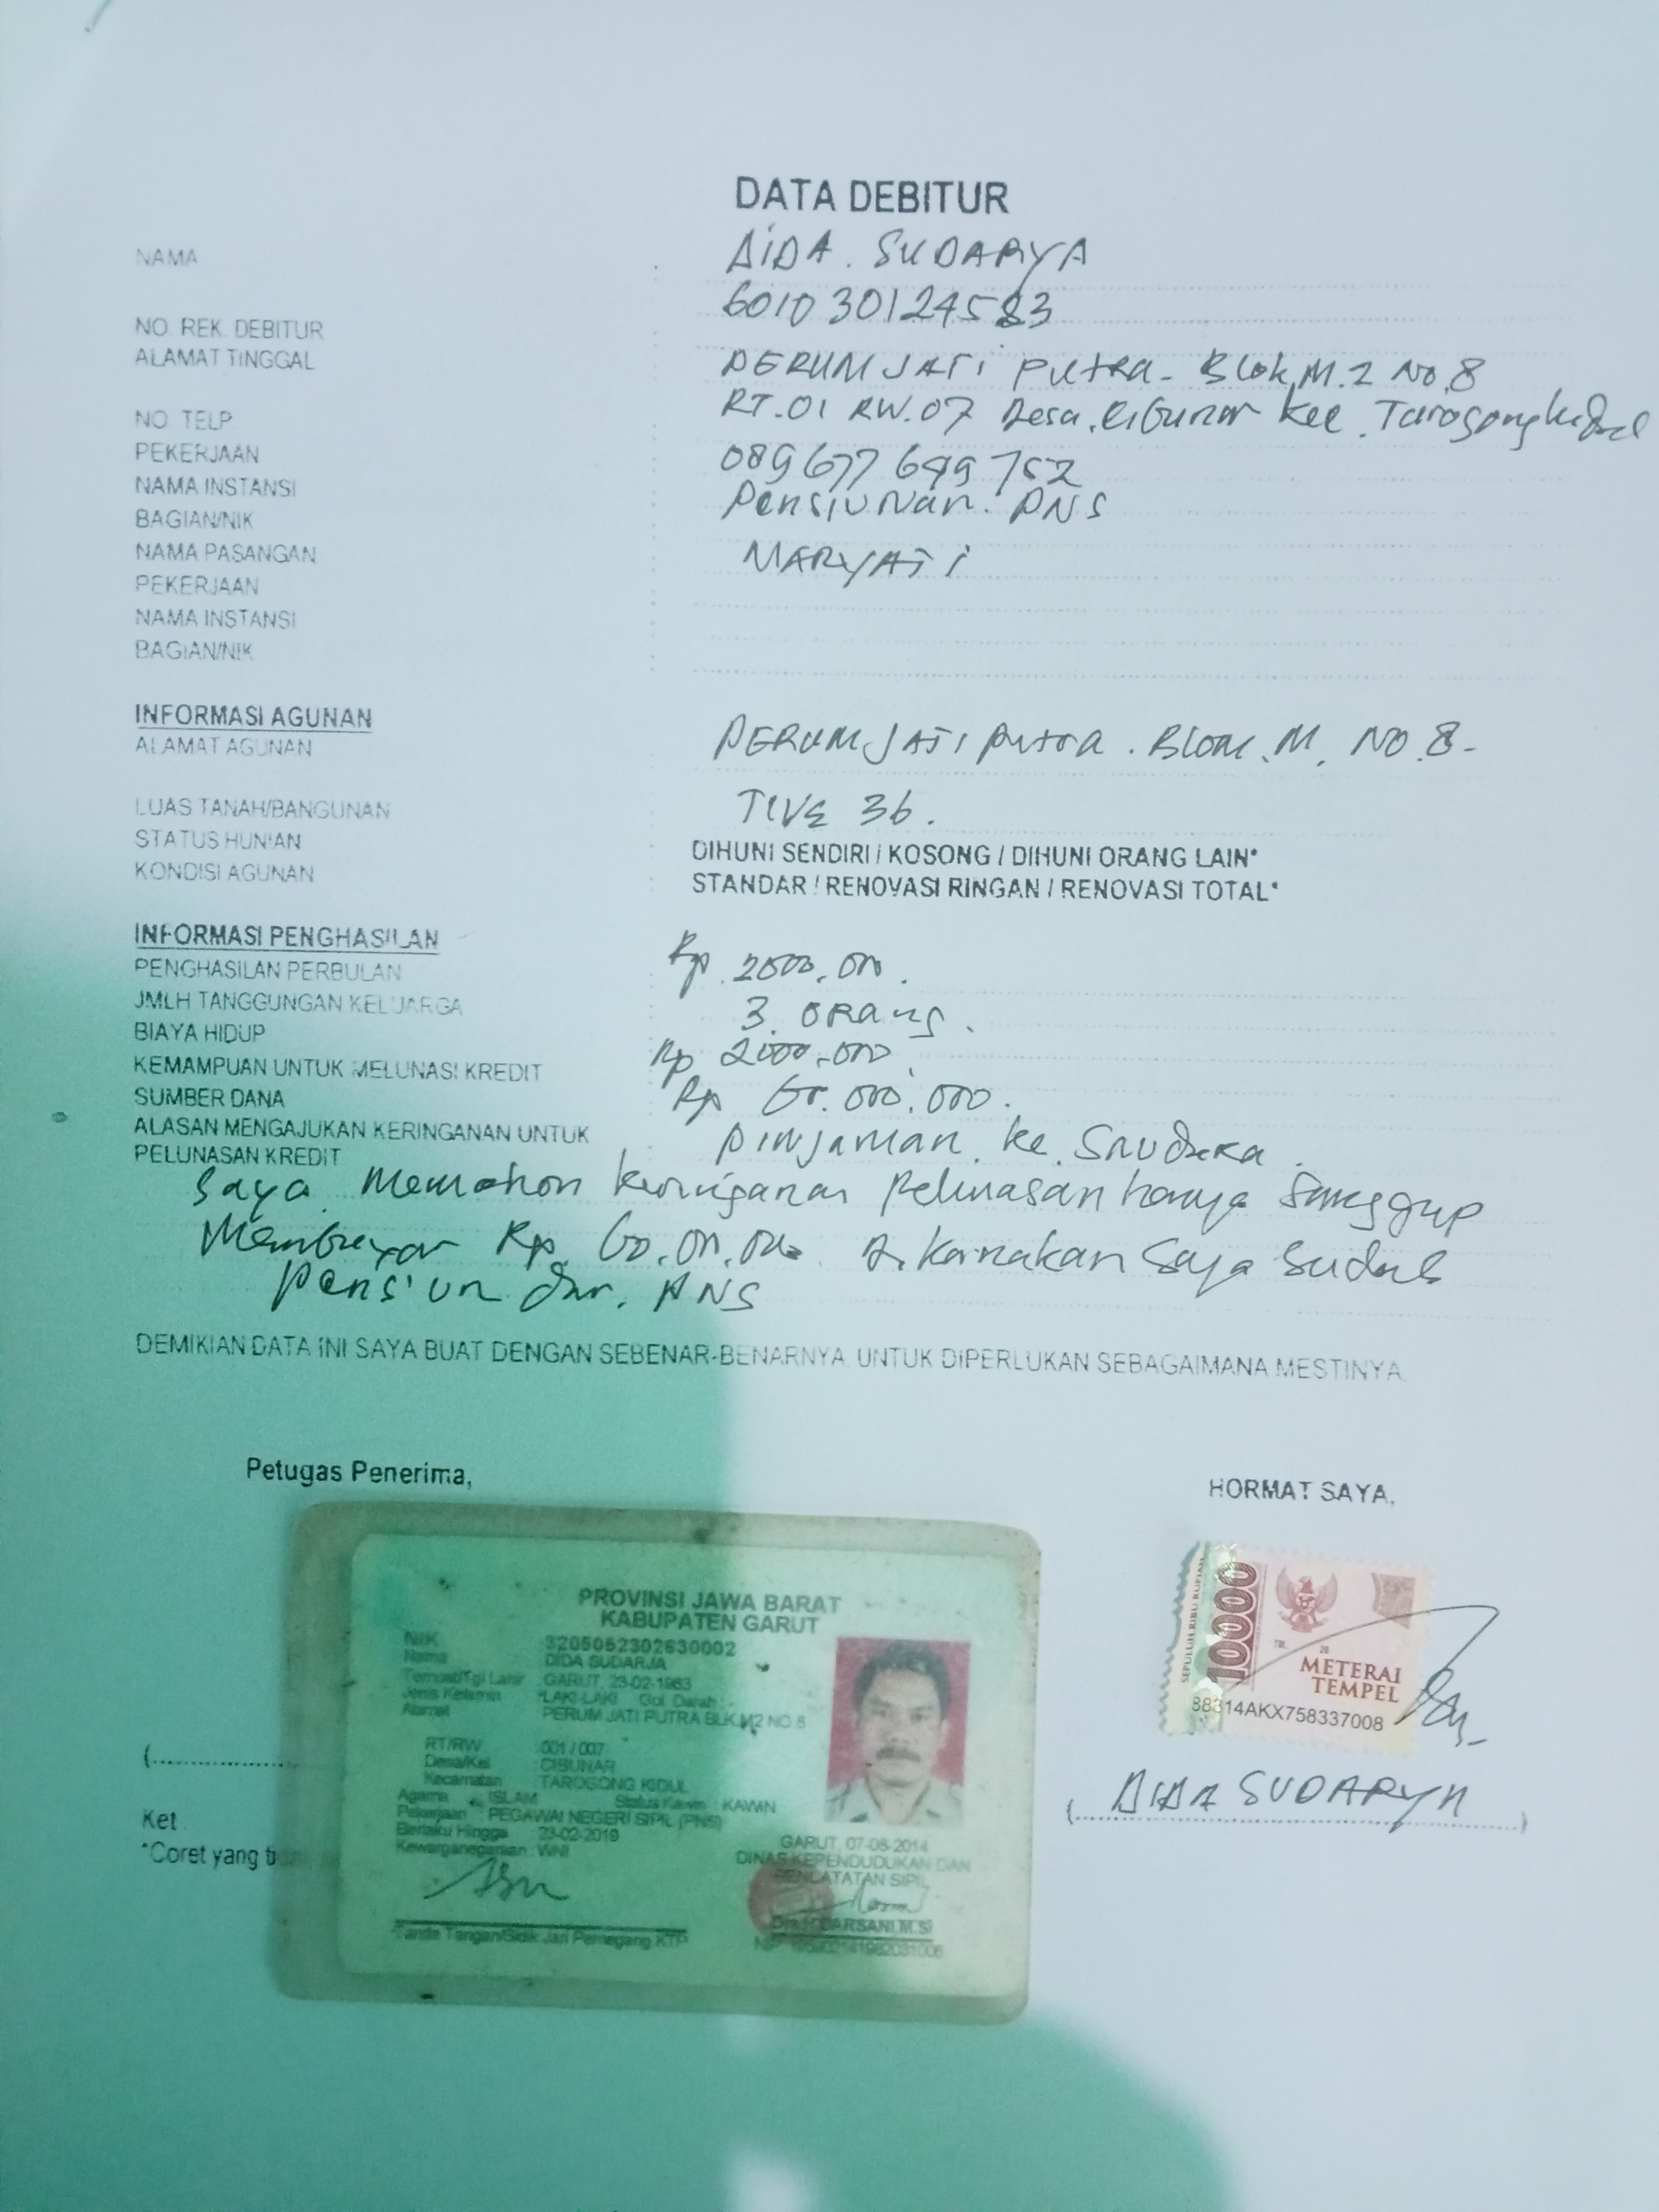 DATA DEBITUR
NAMA : DIDA. SUDARYA
NO. REK. DEBITUR 601030124583
ALAMAT TINGGAL PERUM JATI PUTRA- Blok M.2 No.8
RT.01 RW.07 Desa. CiBunar Kec. Tarogong kidul
NO. TELP
PEKERJAAN 089677649752
NAMA INSTANSI Pensiunan. PNS
BAGIAN/NIK
NAMA PASANGAN MARYATI
PEKERJAAN
NAMA INSTANSI
BAGIAN/NIK
INFORMASI AGUNAN
ALAMAT AGUNAN PERUM JATI putra. Blok. M. NO.8-
LUAS TANAH/BANGUNAN 36.
STATUS HUNIAN DIHUNI SENDIRI / KOSONG / DIHUNI ORANG LAIN*
KONDISI AGUNAN STANDAR / RENOVASI RINGAN / RENOVASI TOTAL*
INFORMASI PENGHASILAN
PENGHASILAN PERBULAN Rp
JMLH TANGGUNGAN KELUARGA 3. ORang.
BIAYA HIDUP Rp 2000.000
KEMAMPUAN UNTUK MELUNASI KREDIT Rp 60.000.000.
SUMBER DANA
ALASAN MENGAJUKAN KERINGANAN UNTUK pinjaman. ke. Saudara.
PELUNASAN KREDIT
Saya Memohon keringanan Pelunasan hanya Sanggup
Membayar Rp. Di karnakan Saya Sudah
Pensiun dari. PNS
DEMIKIAN DATA INI SAYA BUAT DENGAN SEBENAR-BENARNYA UNTUK DIPERLUKAN SEBAGAIMANA MESTINYA.
Petugas Penerima,
HORMAT SAYA,
PROVINSI JAWA BARAT
KABUPATEN GARUT
NIK 3205052302630002
Nama DIDA SUDARJA
Tempat/Tgl Lahir : GARUT, 23-02-1963
Jenis Kelamin : LAKI-LAKI Gol. Darah :
Alamat PERUM JATI PUTRA BLK.M2 NO.8
RT/RW 001 / 007
Desa/Kel : CIBUNAR
Kecamatan : TAROGONG KIDUL
Agama : ISLAM Status Kawin : KAWIN
Pekerjaan : PEGAWAI NEGERI SIPIL (PNS)
Berlaku Hingga : 23-02-2019
Kewarganegaraan : WNI
GARUT, 07-08-2014
DINAS KEPENDUDUKAN DAN
PENCATATAN SIPIL
DARSANI, M.SI
Tanda Tangan/Sidik Jari Pemegang KTP
SEPULUH RIBU RUPIAH
10000
TGL. 20
METERAI
TEMPEL
88314AKX758337008
( DIDA SUDARYA )
Ket
*Coret yang